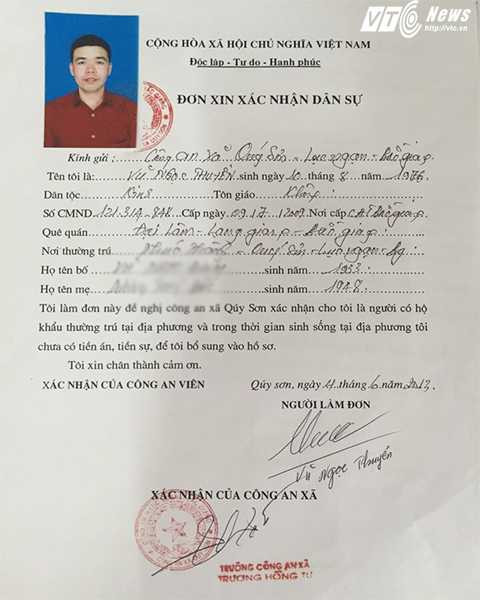 VTC News
http://vtc.vn
CỘNG HÒA XÃ HỘI CHỦ NGHĨA VIỆT NAM
Độc lập - Tự do - Hạnh phúc
ĐƠN XIN XÁC NHẬN DÂN SỰ
Kính gửi: Công an xã Quý Sơn - Lục Ngạn - Bắc giang
Tên tôi là: Vũ NGỌC THUYÊN sinh ngày 10 tháng 8 năm 1976
Dân tộc Kinh Tôn giáo Không
Số CMND 121.314.848 Cấp ngày 09.17.2009 Nơi cấp CA Bắc giang
Quê quán Đại Lâm - Lạng giang - Bắc giang
Nơi thường trú - Quý Sơn - Lục ngạn - Bg
Họ tên bố sinh năm 1953
Họ tên mẹ sinh năm 1948
Tôi làm đơn này đề nghị công an xã Qúy Sơn xác nhận cho tôi là người có hộ
khẩu thường trú tại địa phương và trong thời gian sinh sống tại địa phương tôi
chưa có tiền án, tiền sự, để tôi bổ sung vào hồ sơ.
Tôi xin chân thành cảm ơn.
XÁC NHẬN CỦA CÔNG AN VIÊN
Qúy sơn, ngày 4 tháng 6 năm 2013
NGƯỜI LÀM ĐƠN
Vũ Ngọc Thuyên
XÁC NHẬN CỦA CÔNG AN XÃ
TRƯỞNG CÔNG AN XÃ
TRƯƠNG HỒNG TƯ